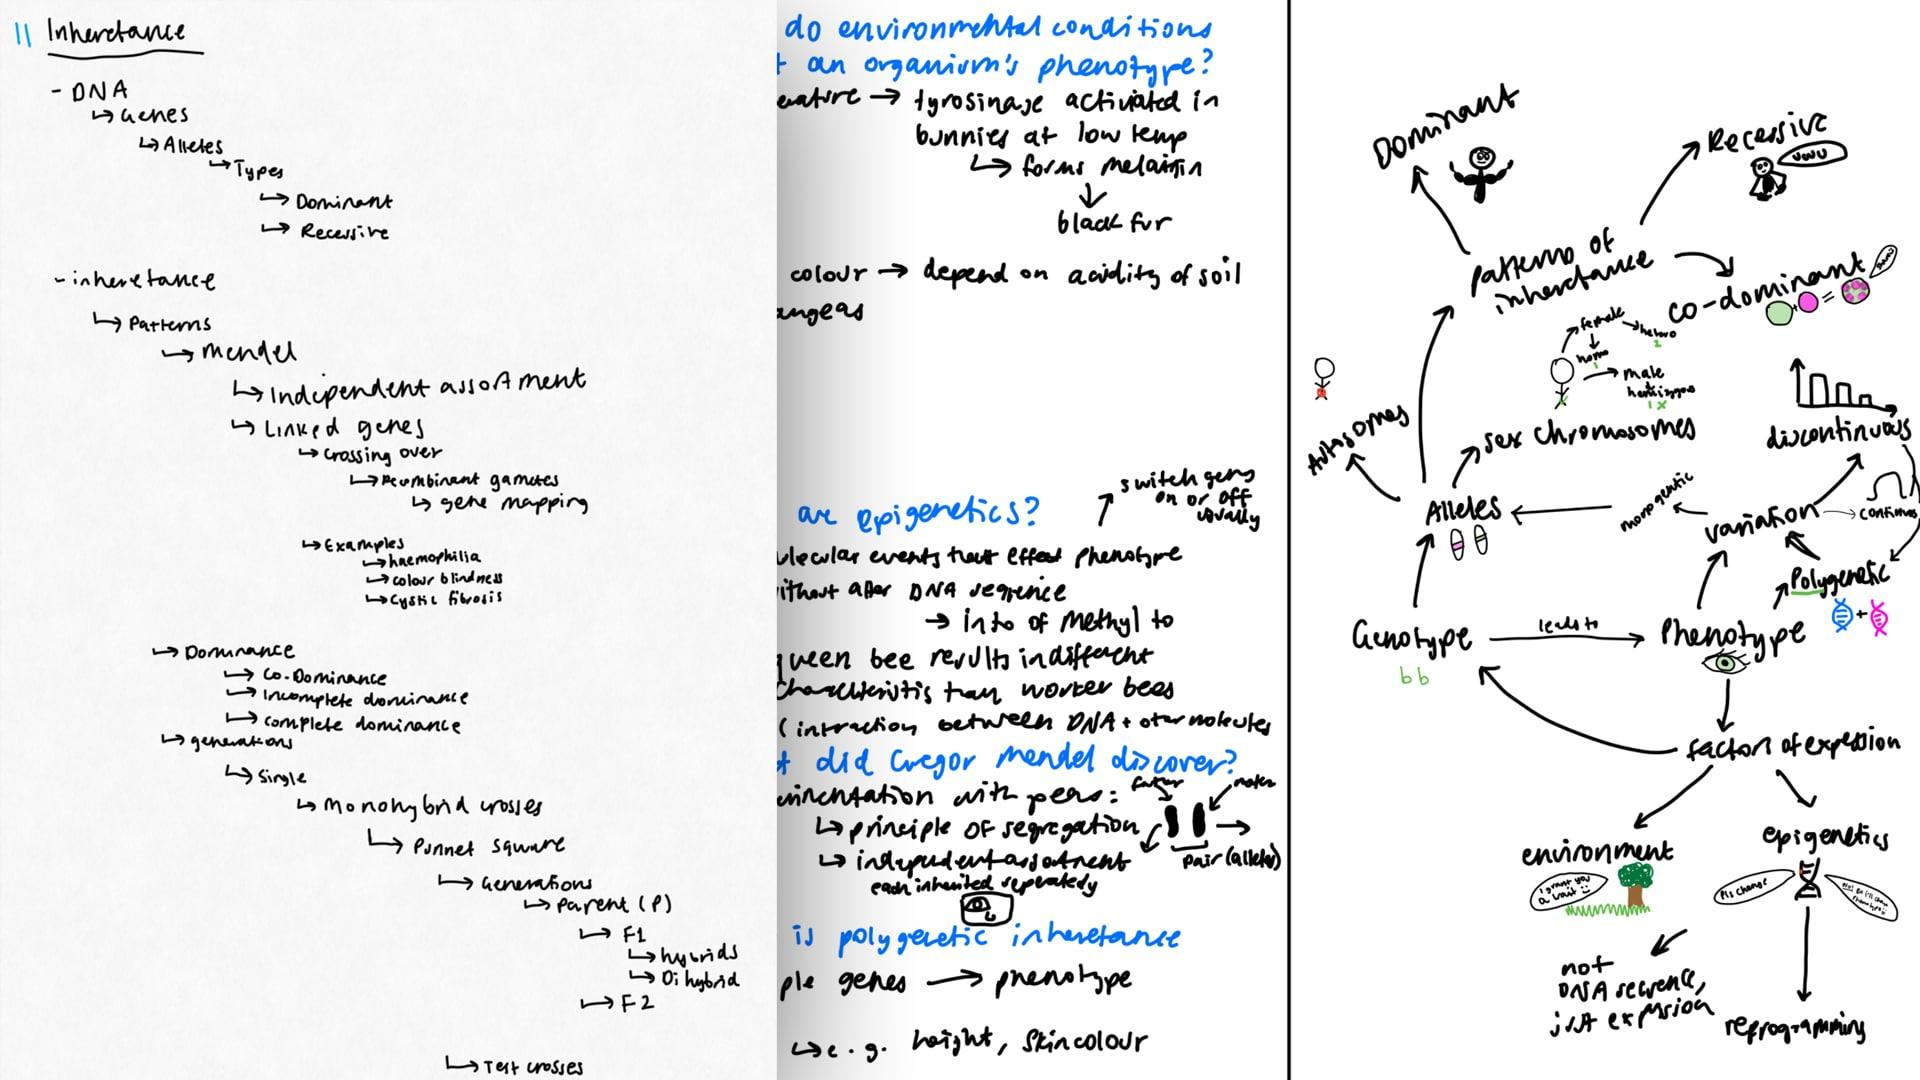 11 Inheretance
- DNA
↳ Genes
↳ Alleles
↳ Types
↳ Dominant
↳ Recessive
- inheretance
↳ Patterns
↳ mendel
↳ Independent assortment
↳ Linked genes
↳ Crossing over
↳ Recombinant gametes
↳ gene mapping
↳ Examples
↳ haemophilia
↳ colour blindness
↳ Cystic fibrosis
↳ Dominance
↳ Co-Dominance
↳ Incomplete dominance
↳ complete dominance
↳ generations
↳ Single
↳ Monohybrid crosses
↳ Punnet square
↳ Generations
↳ Parent (P)
↳ F1
↳ hybrids
↳ Dihybrid
↳ F2
↳ Test crosses
do environmental conditions
an organism's phenotype?
erature → tyrosinase activated in
bunnies at low temp
↳ forms melanin
↓
black fur
colour → depend on acidity of soil
angeas
switch genes
on or off
usually
are epigenetics?
olecular events that effect phenotype
ithout alter DNA seqrence
→ into of methyl to
queen bee results in different
characteristis than worker bees
( intraction between DNA + other molecules
did Gregor mendel discover?
father
mother
with peas:
↳ principle of segregation
↳ independent assortment
pair (alleles)
each inherited seperately
is polygenetic inheretance
ple genes → phenotype
↳ e.g. height, skin colour
Dominant
Recessive
uwu
Patterns of
inheretance
co-dominant
female
hetero
2
homo
male
hemizygous
1 x
Autosomes
sex chromosomes
discontinuous
Alleles
monogenetic
variation
continous
Polygenetic
Genotype
leads to
Phenotype
bb
factors of expession
environment
epigenetics
I grant you
a trait
Pls change
not
DNA seqrence,
just expression
reprogramming